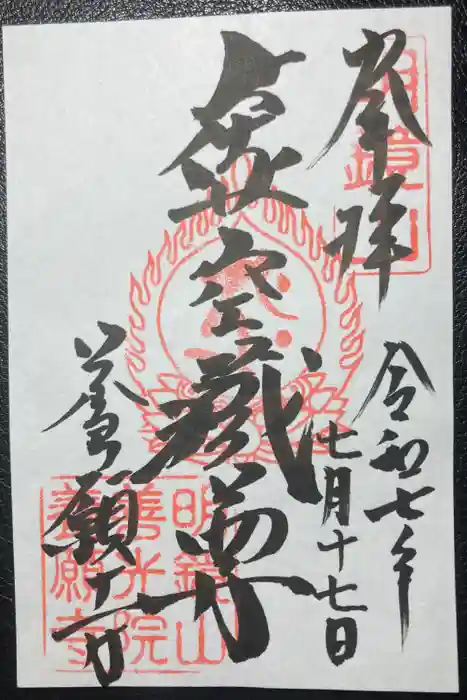 奉拝
明鏡山
令和七年
七月十七日
虚空蔵尊
養願寺
明鏡山
善光院
養願寺